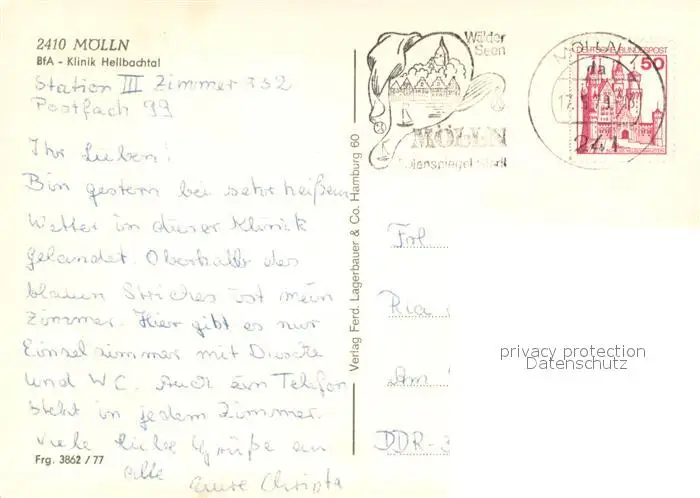 2410 MÖLLN
BfA - Klinik Hellbachtal
Station III Zimmer 352
Postfach 99
Ihr Lieben!
Bin gestern bei sehr heißem
Wetter in dieser Klinik
gelandet. Oberhalb des
blauen Striches ist mein
Zimmer. Hier gibt es nur
Einzelzimmer mit Dusche
und WC. Auch ein Telefon
steht in jedem Zimmer.
Viele liebe Grüße an
alle Eure Christa
Frg. 3862/77
Verlag Ferd. Lagerbauer & Co. Hamburg 60
Wälder
Seen
MÖLLN
Eulenspiegelstadt
MÖLLN
241
DEUTSCHE BUNDESPOST
50
Frl.
Ria
Am
DDR-3
privacy protection
Datenschutz